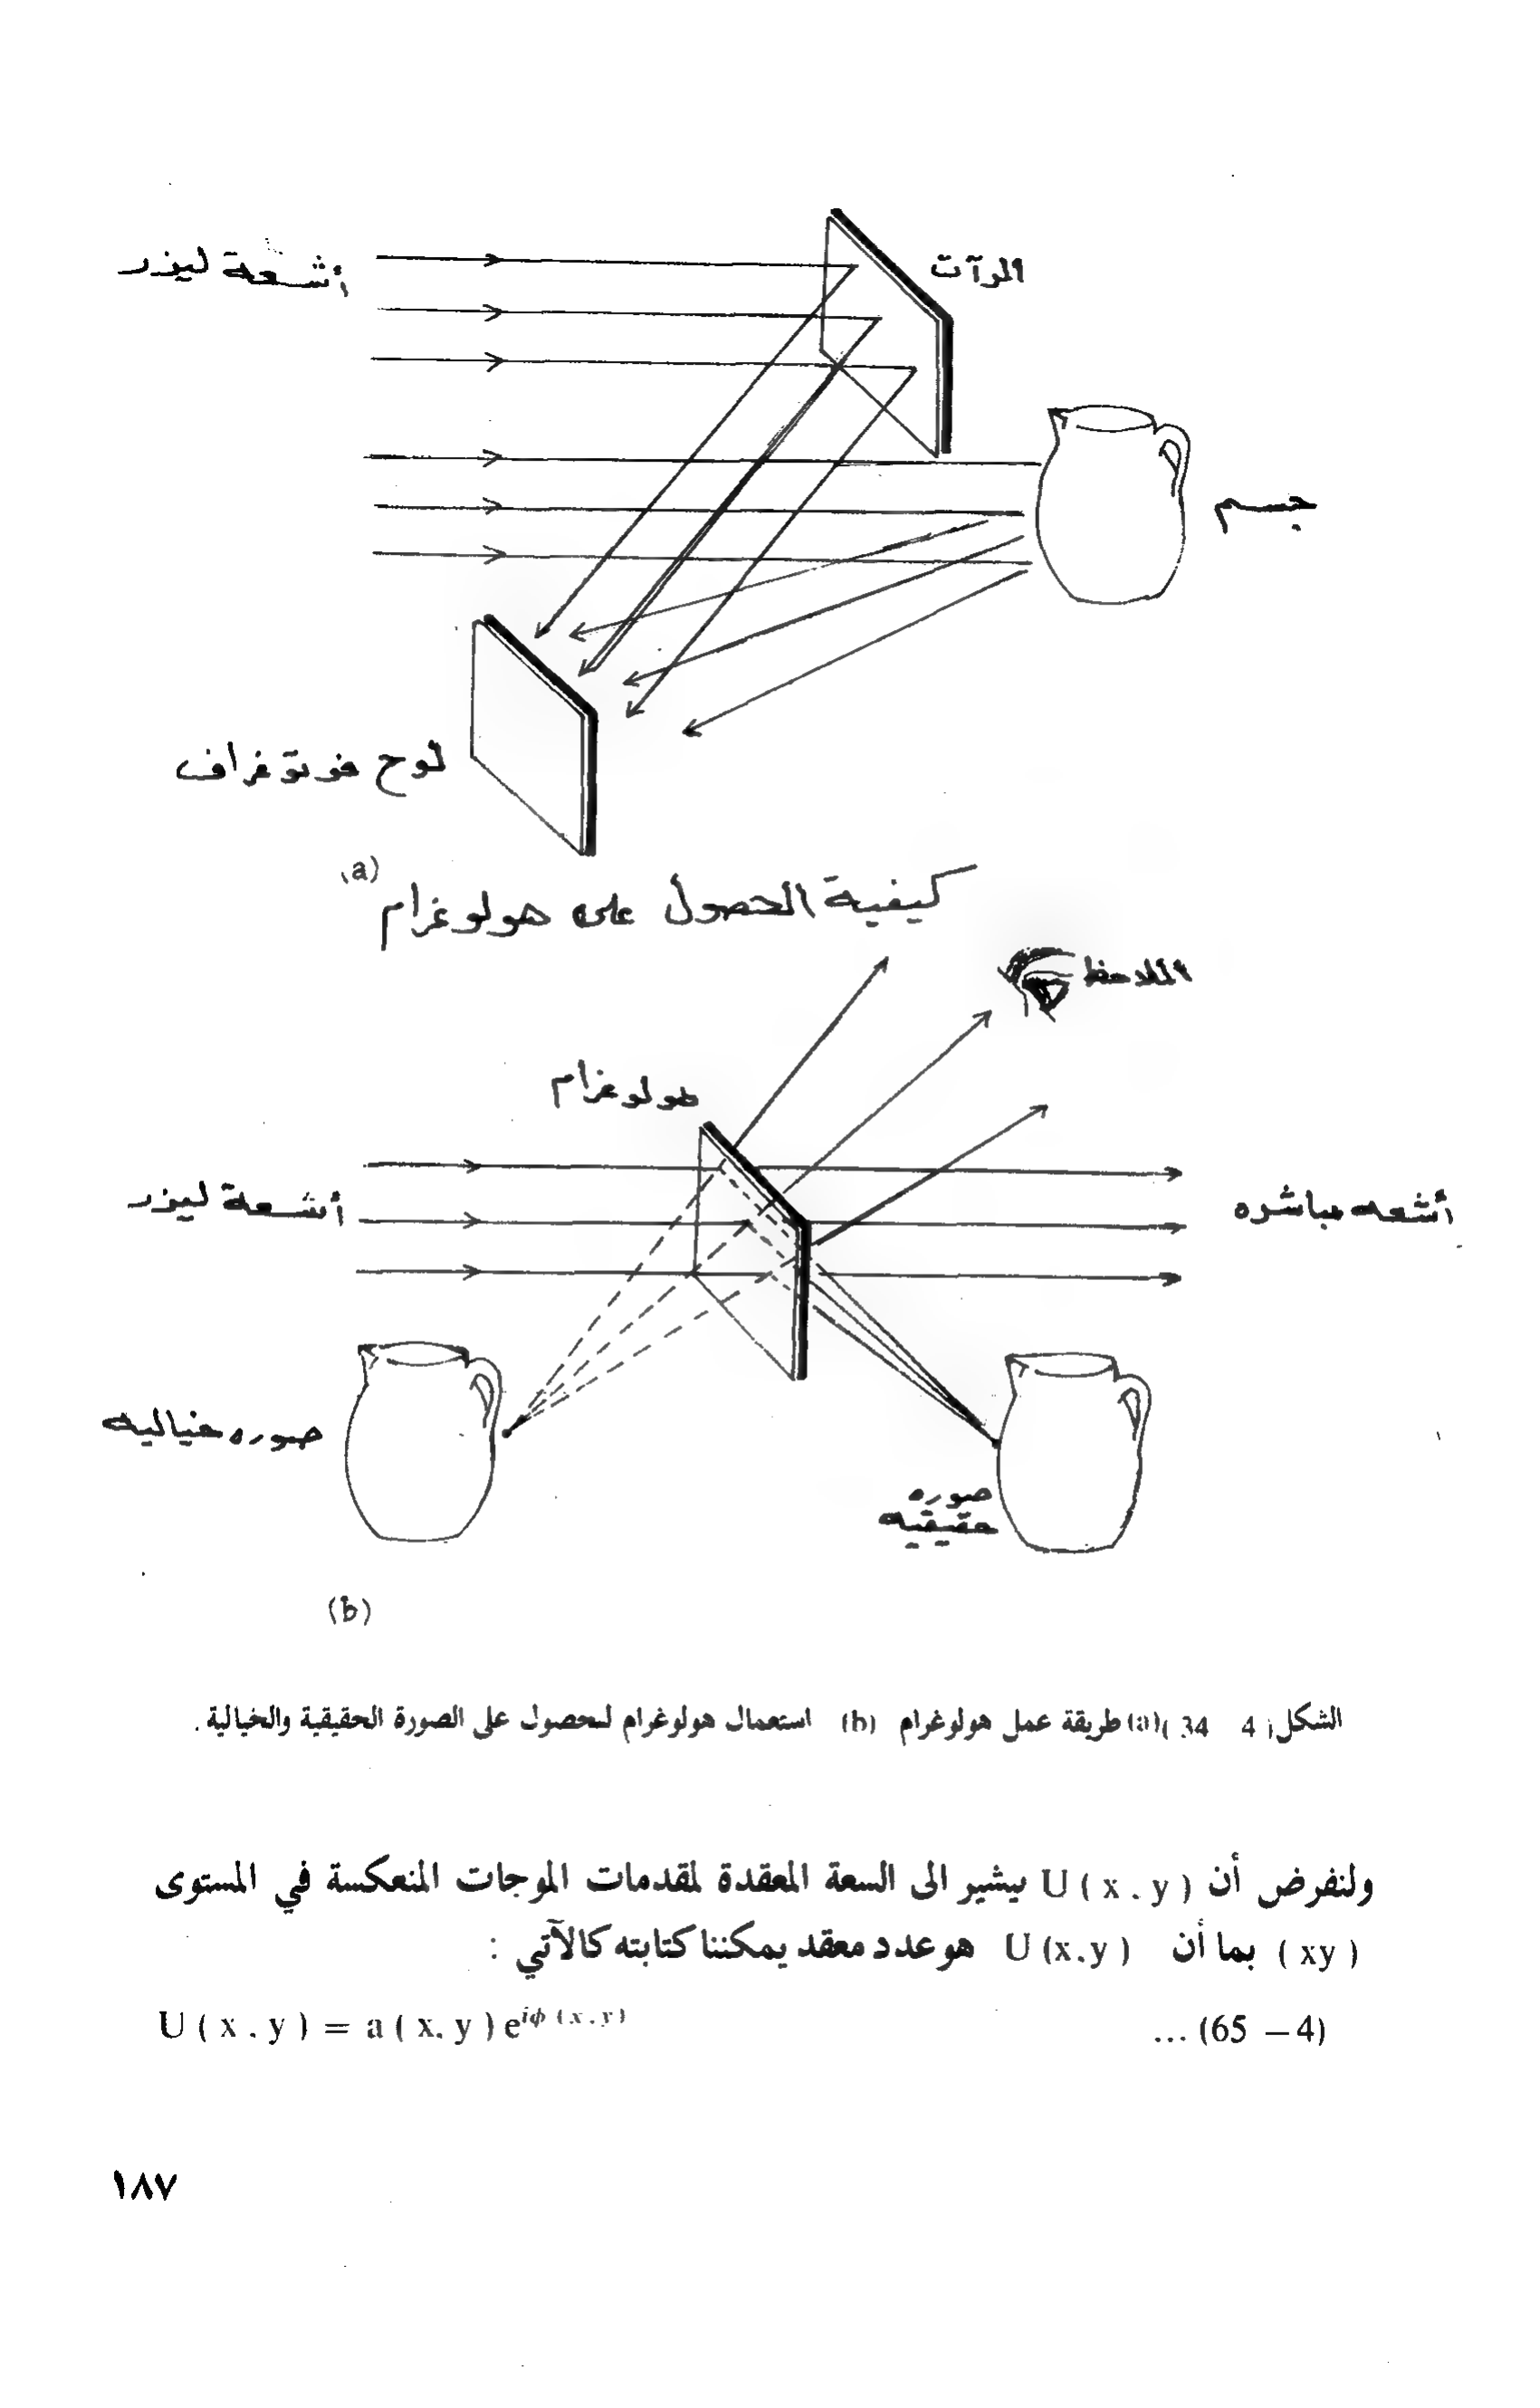 أشعة ليزر
المرآت
جسم
لوح فوتوغراف
(a)
كيفية الحصول على هولوغرام
الملاحظ
هولوغرام
أشعة ليزر
أشعه مباشره
صوره خياليه
صوره
حقيقيه
(b)
الشكل (4 34) (a) طريقة عمل هولوغرام (b) استعمال هولوغرام للحصول على الصورة الحقيقية والخيالية .
ولنفرض أن U ( x . y ) يشير الى السعة المعقدة لمقدمات الموجات المنعكسة في المستوى
( xy ) بما أن U (x.y ) هو عدد معقد يمكننا كتابته كالآتي :
U ( x . y ) = a ( x. y ) e^{iϕ (x.y)} ... (65 – 4)
١٨٧